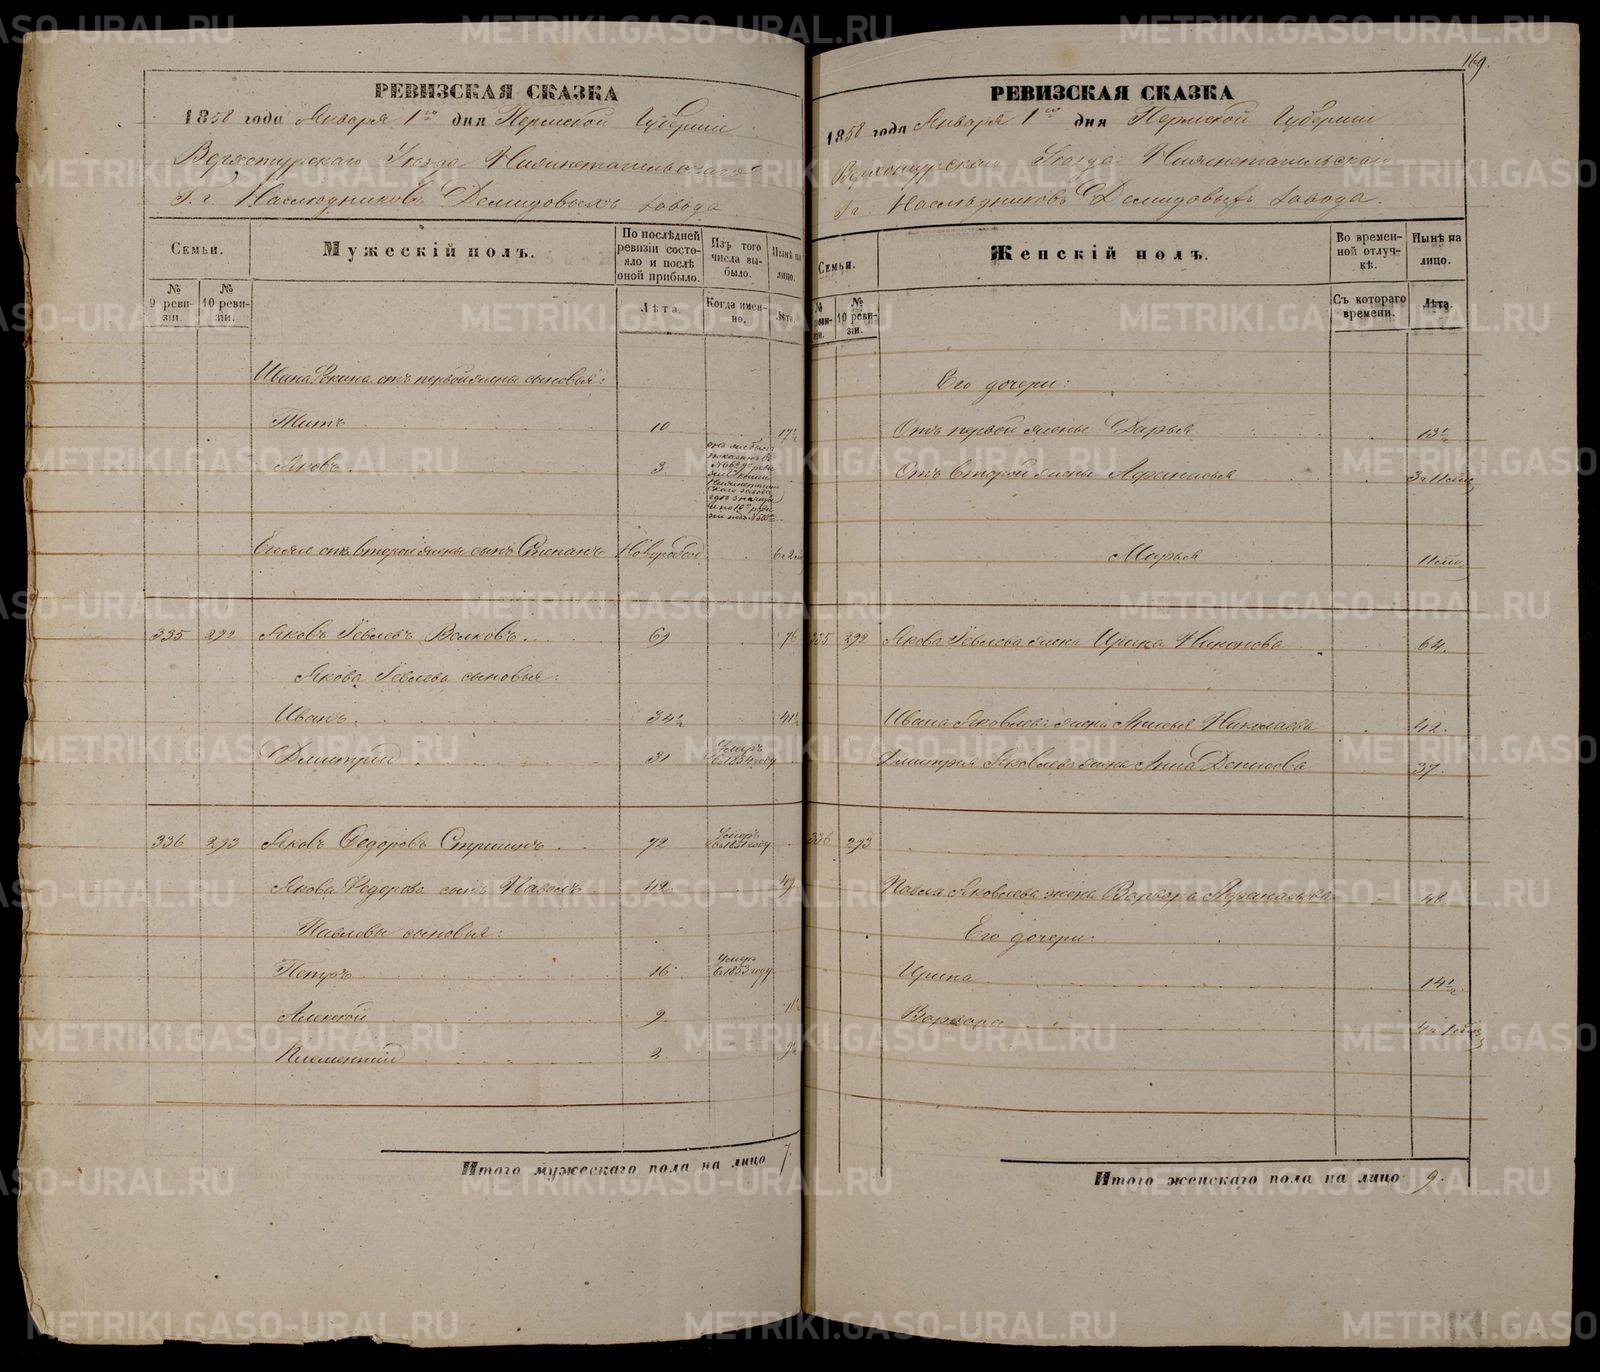 169.
РЕВИЗСКАЯ СКАЗКА
1858 года Января 1го дня Пермской Губернiи
Верхотурскаго Уѣзда Нижнетагильскаго
Г. г. Наслѣдниковъ Демидовыхъ завода
Семьи.
Мужескiй полъ.
По послѣдней ревизiи состояло и послѣ оной прибыло.
Изъ того числа выбыло.
Нынѣ на лицо.
№ 9 ревизiи.
№ 10 ревизiи.
Лѣта.
Когда именно.
Лѣта.
Ивана отъ первой жены сыновья:
Титъ 10 17½
Яковъ 3
отъ второй жены сынъ Степанъ
335 292 Яковъ Iевлевъ Волковъ 69 76
Якова Iевлева сыновья:
Иванъ 34½ 41½
Дмитрiй 31 Умеръ въ 1854 году
336 293 Яковъ Ѳедоровъ Стригинъ 72 Умеръ въ 1851 году
Якова Ѳедорова сынъ Павелъ 42 49
Павловы сыновья:
Петръ 16 Умеръ въ 1853 году
Алексѣй 9
Климентiй 2
Итого мужескаго пола на лицо 7.
РЕВИЗСКАЯ СКАЗКА
1858 года Января 1го дня Пермской Губернiи
Верхотурскаго Уѣзда Нижнетагильскаго
Г. г. Наслѣдниковъ Демидовыхъ завода.
Семьи.
Женскiй полъ.
Во временной отлучкѣ.
Нынѣ на лицо.
№ ревизiи.
№ 10 ревизiи.
Съ котораго времени.
Лѣта.
Его дочери:
Отъ первой жены Дарья 13½
Отъ второй жены Афанасья
Марья 11
335 292 Якова Iевлева жена Ирина Никонова 64.
Ивана Яковлева жена Николаева 42.
Дмитрiя Яковлева жена Анна Денисова 37.
336 293
Павла Яковлева жена Варвара Афанасьева 48
Его дочери:
Ирина 14½
Варвара
Итого женскаго пола на лицо 9.
METRIKI.GASO-URAL.RU